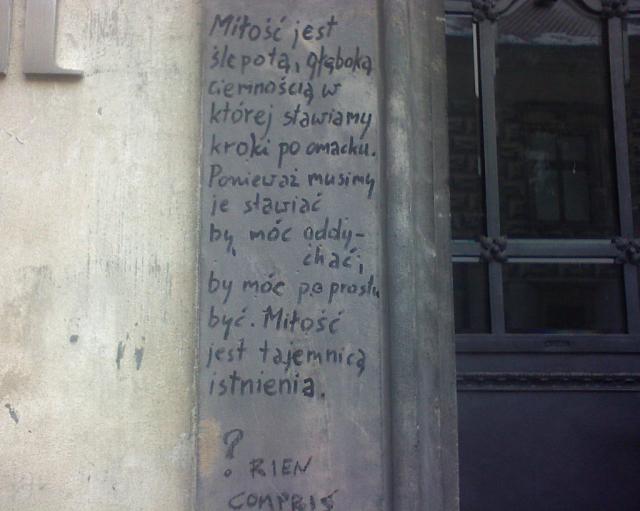 Miłość jest
ślepotą, głęboką
ciemnością w
której stawiamy
kroki po omacku.
Ponieważ musimy
je stawiać
by móc oddy-
chać,
by móc po prostu
być. Miłość
jest tajemnicą
istnienia.
?
RIEN
COMPRIS